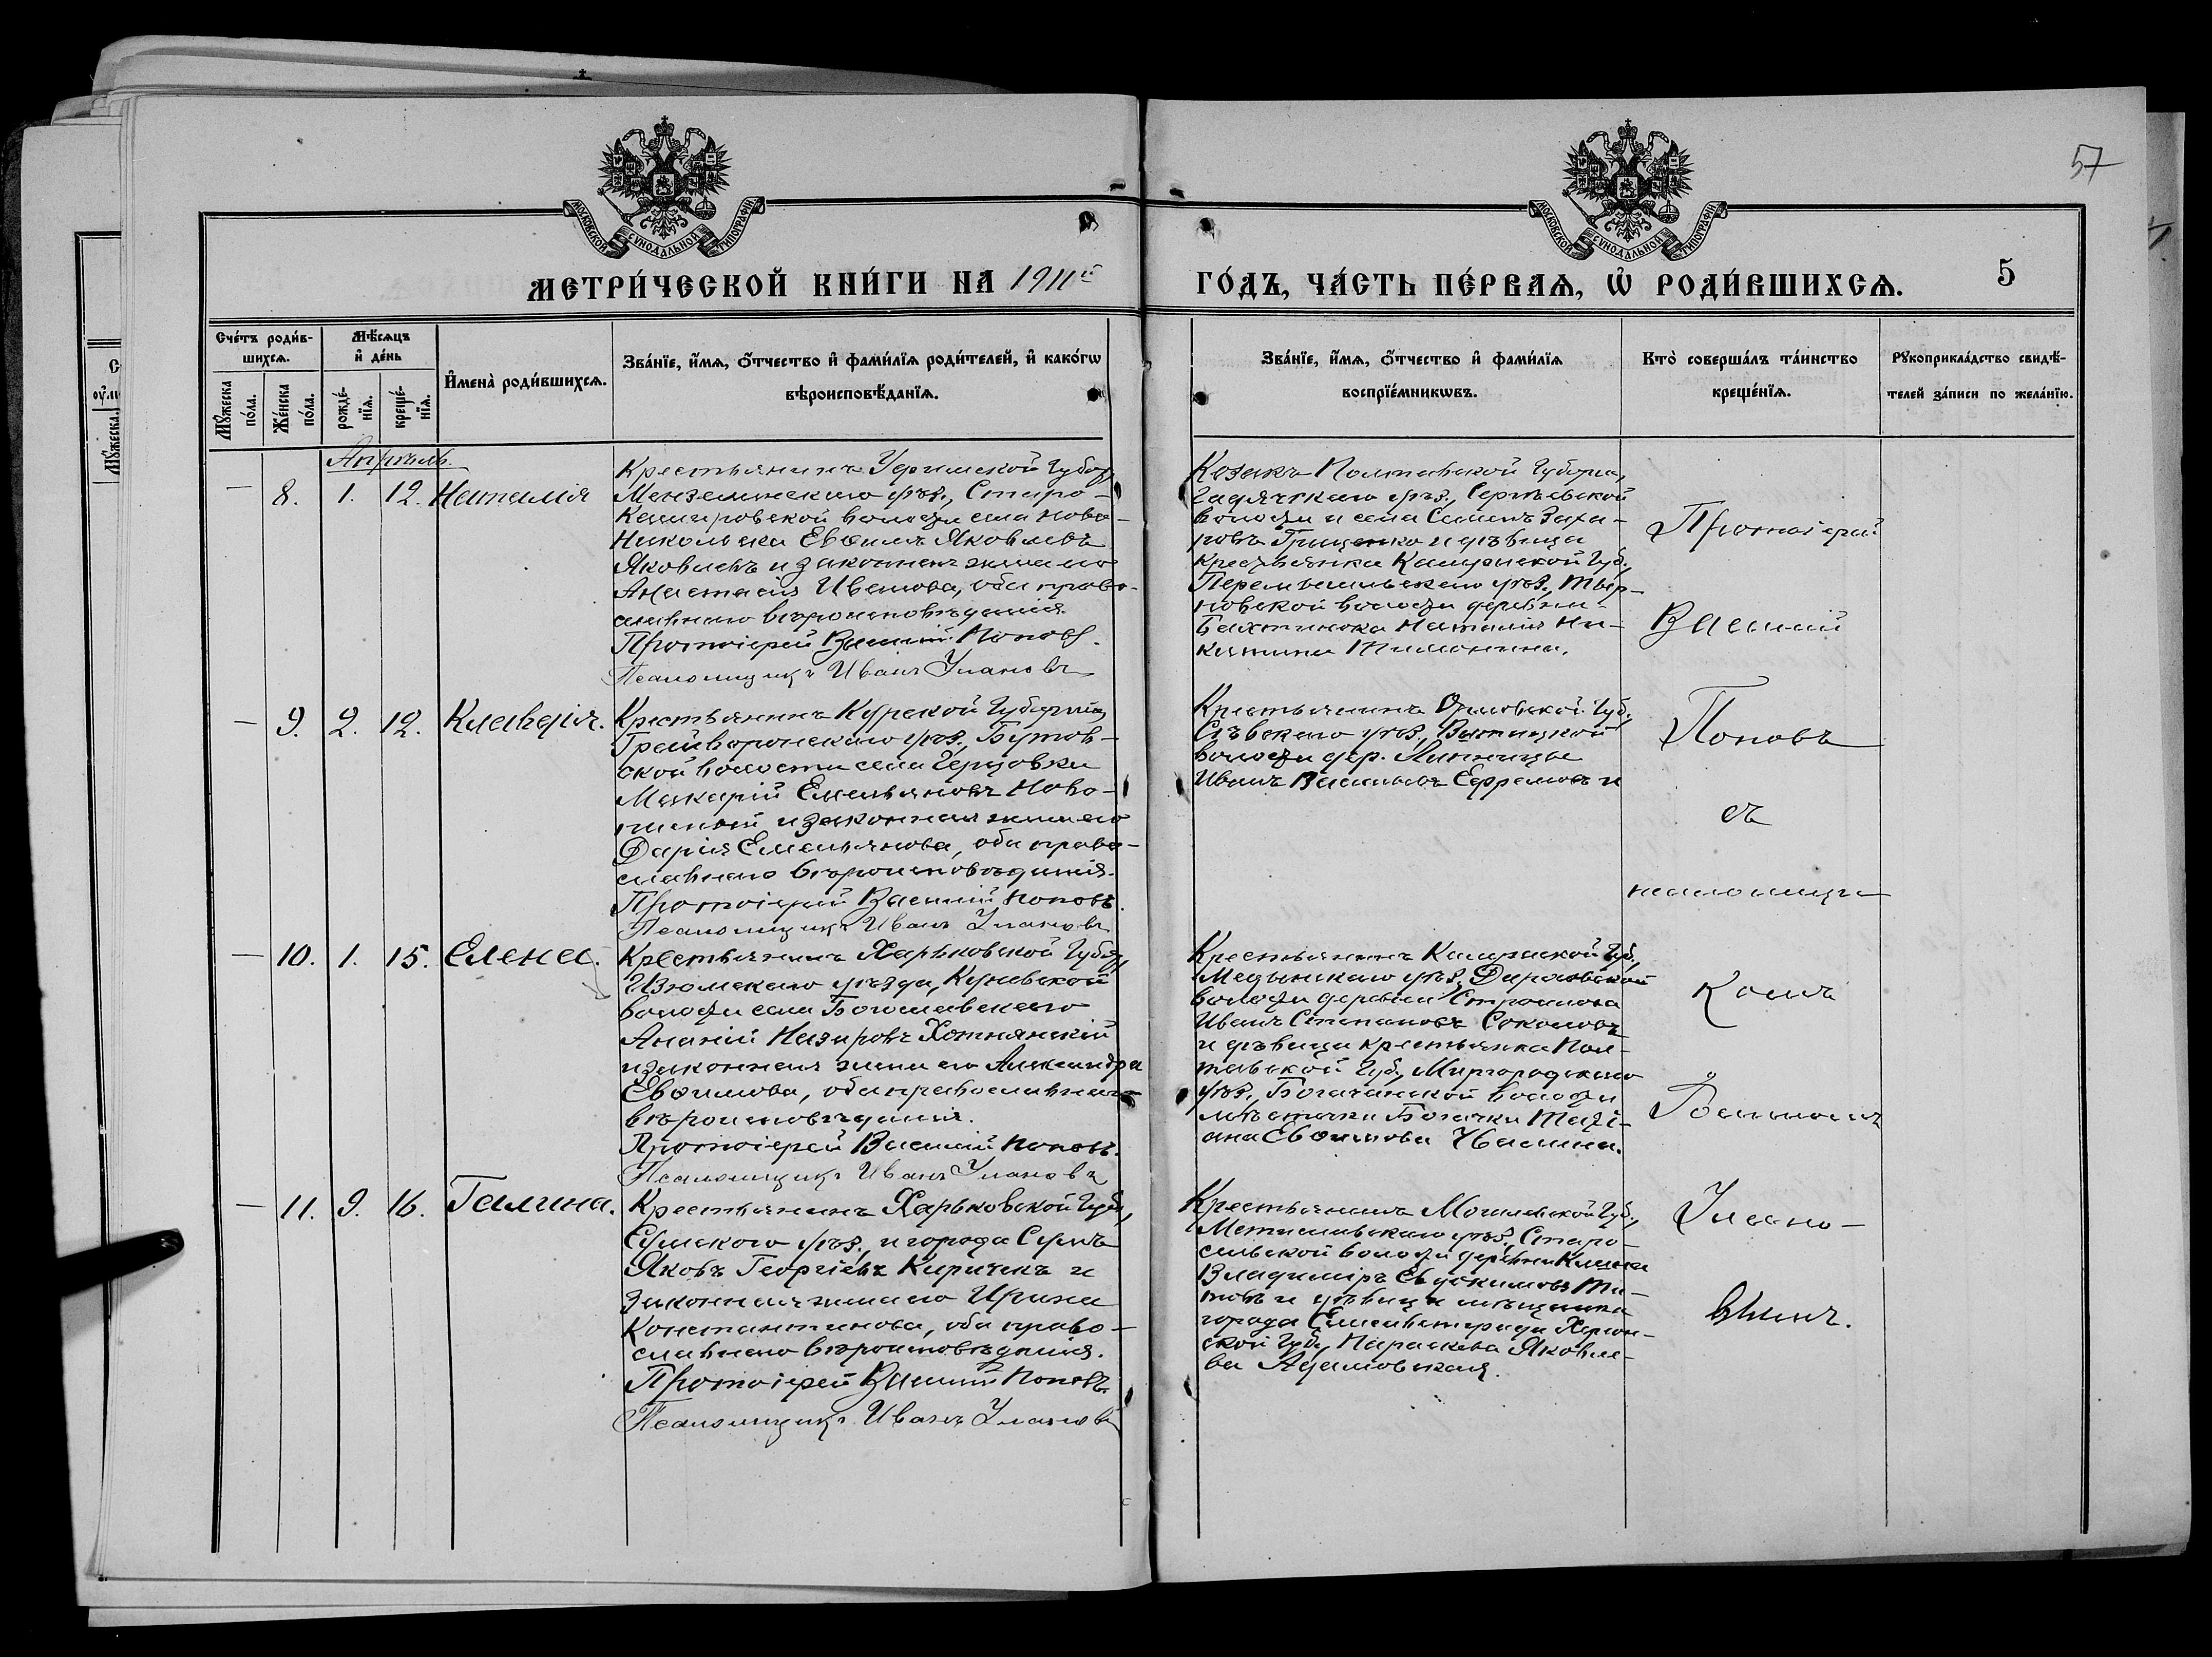 57
МОСКОВСКОЙ СУНОДАЛЬНОЙ ТИПОГРАФІИ
МОСКОВСКОЙ СУНОДАЛЬНОЙ ТИПОГРАФІИ
МЕТРИ́ЧЕСКОЙ КНИ́ГИ НА 1911й
ГО́ДЪ, ЧА́СТЬ ПЕ́РВАѦ, Ѡ҆ РОДИ́ВШИХСѦ. 5
Сче́тъ роди́в-
шихсѧ.
Мꙋ́жеска по́ла.
Же́нска по́ла.
Мѣ́сѧцъ
и҆ де́нь
рожде́-
нїѧ.
креще́-
нїѧ.
И҆мена̀ роди́вшихсѧ.
Зва́нїе, и҆́мѧ, ѻ҆́тчество и҆ фами́лїѧ роди́телей, и҆ како́гѡ
вѣроисповѣ́данїѧ.
Зва́нїе, и҆́мѧ, ѻ҆́тчество и҆ фами́лїѧ
воспрїе́мникѡвъ.
Кто̀ соверша́лъ та́инство
креще́нїѧ.
Рꙋкоприкла́дство свидѣ́-
телей за́писи по жела́нїю.
Апрѣль.
— 8. 1. 12. Наталія
Крестьянинъ Уфимской Губер,
Мензелинскаго уѣз., Старо-
Кашировской волости села Ново-
Никольска Евѳимъ Яковлевъ
Яковлевъ и законная жена его
Анастасія Иванова, оба право-
славнаго вѣроисповѣданія.
Протоіерей Василій Поповъ.
Псаломщикъ Иванъ Улановъ
Козакъ Полтавской Губерніи,
Гадячскаго уѣз., Сергѣевской
волости и села Семенъ Заха-
ровъ Грищенко и дѣвица
крестьянка Калужской Губ.,
Перемышльскаго уѣз.,
новской волости деревни
Наталія Ни-
китина Тимонина.
— 9. 2. 12. Клавдія.
Крестьянинъ Курской Губерніи,
Грайворонскаго уѣз., Бутов-
ской волости села Черцовки
Макарій Емельяновъ
и законная жена его
Дарія Емельянова, оба право-
славнаго вѣроисповѣданія.
Протоіерей Василій Поповъ.
Псаломщикъ Иванъ Улановъ
Крестьянинъ Орловской Губ.,
Сѣвскаго уѣз.,
волости дер.
Иванъ Васильевъ Ефремовъ и
— 10. 1. 15. Елена.
Крестьянинъ Харьковской Губер,
Изюмскаго уѣзда, Куньевской
волости села Богославскаго
Ананій Назаровъ Хотнянскій
и законная жена его Александра
Евѳимова, оба православнаго
вѣроисповѣданія.
Протоіерей Василій Поповъ.
Псаломщикъ Иванъ Улановъ
Крестьянинъ Калужской Губ.,
Медынскаго уѣз.,
волости деревни
Иванъ Степановъ Соколовъ
и дѣвица крестьянка Пол-
тавской Губ., Миргородскаго
уѣз., Богачанской волости
мѣстечки Богачки Таті-
ана Евѳимова
— 11. 9. 16. Галина.
Крестьянинъ Харьковской Губ.,
Сумского уѣз., и города Сумъ
Яковъ Георгіевъ Киричекъ и
законная жена его Ирина
Константинова, оба право-
славнаго вѣроисповѣданія.
Протоіерей Василій Поповъ.
Псаломщикъ Иванъ Улановъ
Крестьянинъ Могилевской Губ.,
Мстиславскаго уѣз., Старо-
сельской волости деревни
Владиміръ Евдокимовъ Ти-
товъ и дѣвица мѣщанка
города Елисаветграда Херсон-
ской Губ., Параскева Яковле-
ва Адамовская.
Протоіерей
Василій
Поповъ
съ
псаломщи-
комъ
Іоанномъ
Улано-
вымъ.